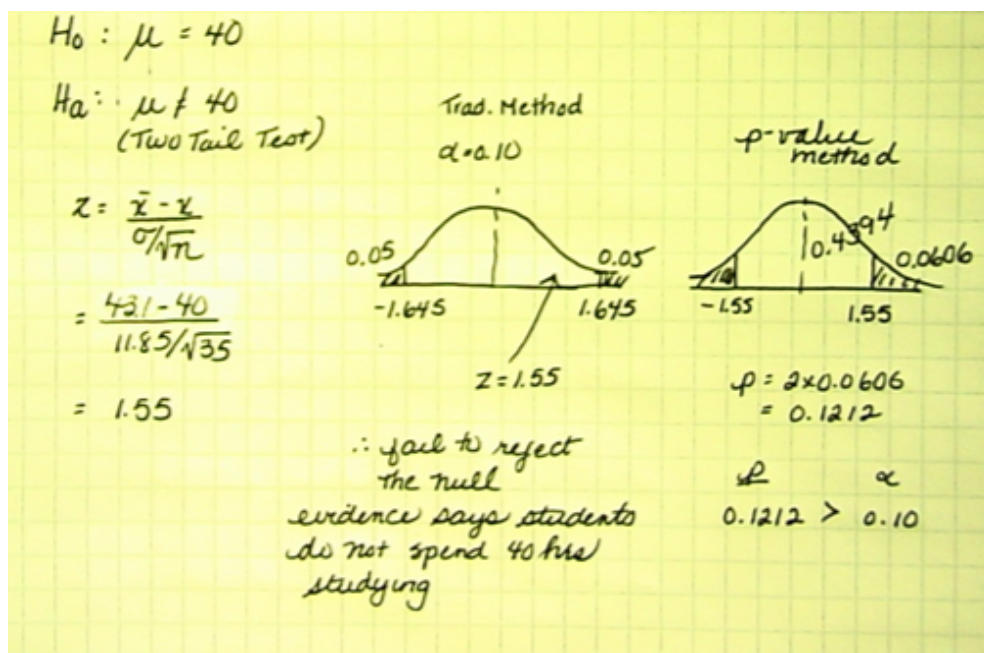 H₀ : μ = 40
Ha : μ ≠ 40
(Two Tail Test)
z = x̄ - x
σ/√n
= 43.1 - 40
11.85/√35
= 1.55
Trad. Method
α = 0.10
0.05 0.05
-1.645 1.645
z = 1.55
∴ fail to reject
the null
evidence says students
do not spend 40 hrs
studying
p-value
method
0.4394
0.0606
-1.55 1.55
p = 2x0.0606
= 0.1212
p α
0.1212 > 0.10